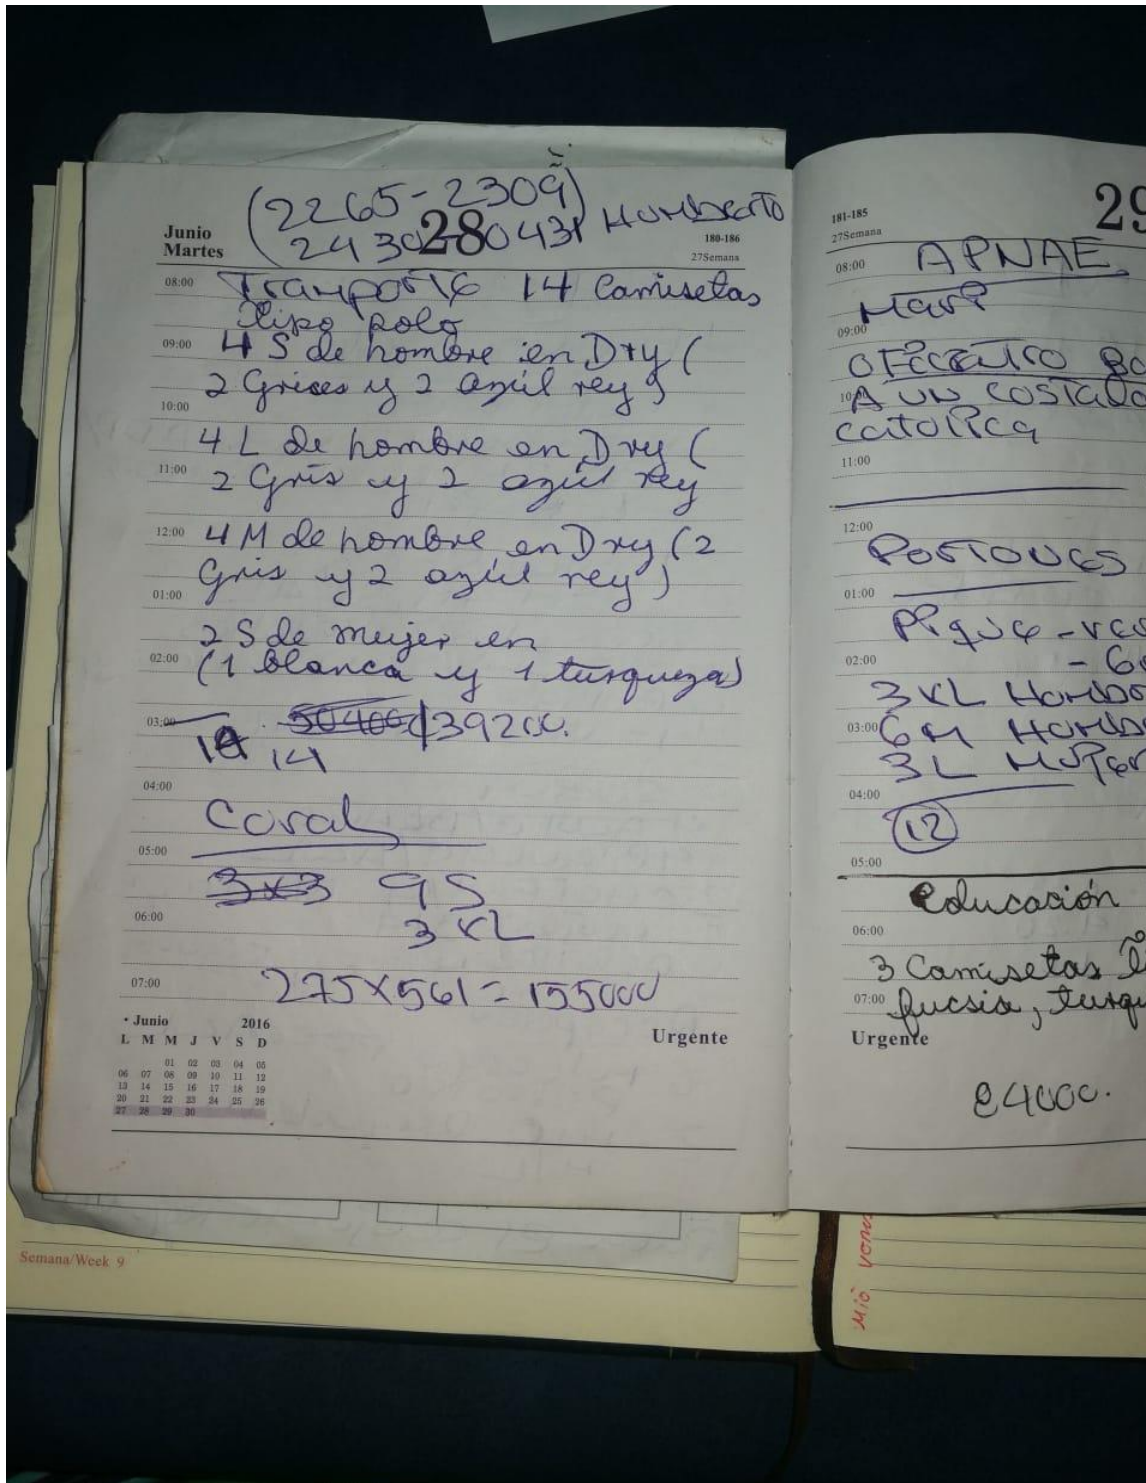 (2265-2309)
Junio
Martes
28
2430 80431 Humberto
180-186
27Semana
08:00 Tranporte 14 Camisetas
tipo polo
09:00 4 S de hombre en Dry (
2 Grises y 2 azúl rey)
10:00
4 L de hombre en Dry (
11:00 2 Gris y 2 azúl rey
12:00 4 M de hombre en Dry (2
Gris y 2 azúl rey)
01:00
2 S de mujer en
02:00 (1 blanca y 1 turqueza)
03:00 50400 39200.
14
04:00
Coral
05:00
3x3 9 S
06:00 3 XL
07:00 275x561=155000
• Junio 2016
L M M J V S D
01 02 03 04 05
06 07 08 09 10 11 12
13 14 15 16 17 18 19
20 21 22 23 24 25 26
27 28 29 30
Urgente
Semana/Week 9
29
181-185
27Semana
08:00 APNAE
Mari
09:00
A un costado
10:00
catolica
11:00
12:00
Postones
01:00
Pique
02:00
3 XL
03:00 6 M
3 L
04:00
12
05:00
Educación
06:00
3 Camisetas
07:00 fucsia,
Urgente
24000.